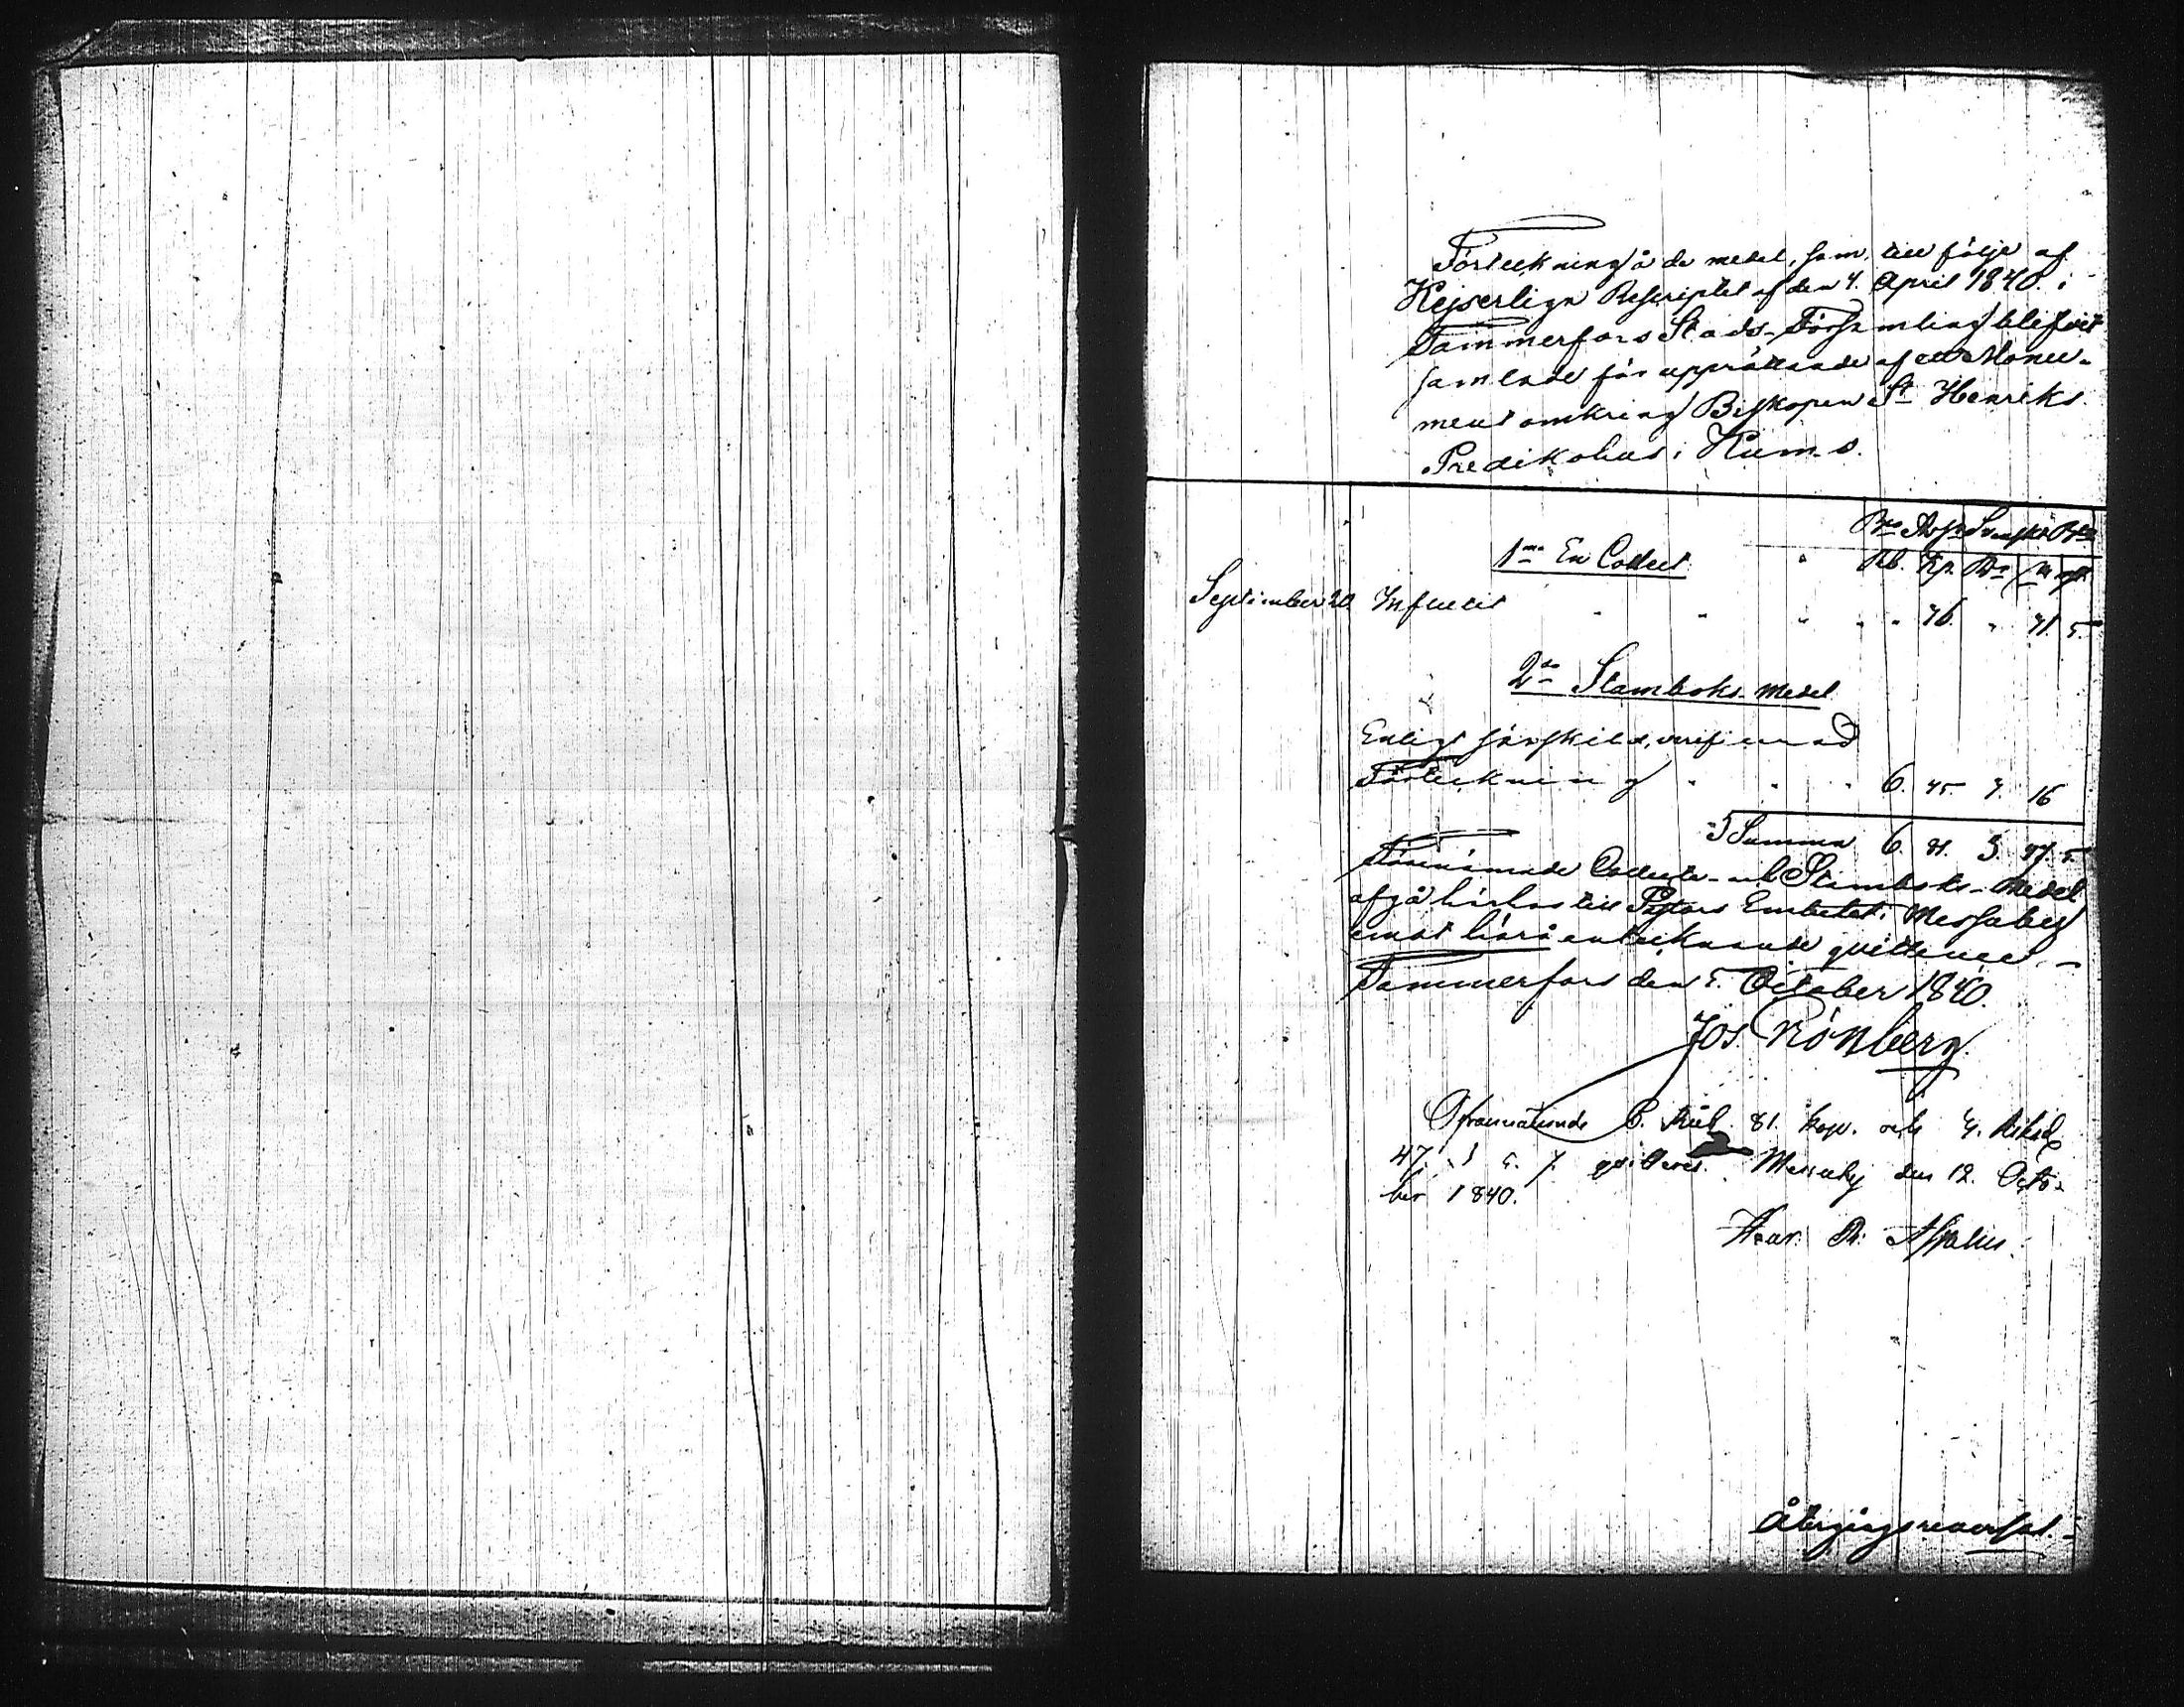 Förteckning å de medel, som, till följe af
Kejserliga Rescriptet af den 4. April 1840. i
Tammerfors Stads-Församling blifvit
samlade för upprättande af ett Monu-
ment omkring Biskopen St Henriks
Predikohus i Kumo.
Bco Assr Svenska Bco
1mo En Collect Rb. Kp. Rd
September 20. Influtit 36. 31. 5.
2do Stamboks medel
Enligt särskild, verificerad
Förteckning 6. 45. 3. 16
Summa 6. 81. 3. 47. 5.
Förenämnde Collecte- och Stamboks-Medel
afgå härhos till Pastors Embetet i Messuby
emot härå antecknande qvittence.
Tammerfors den 5. October 1840.
Jos. Grönberg.
Ofvannämnde 6. Rub. 81. kop. och 3. Riksd
47. s 5. r. qvitteras. Messuby den 12. Octo-
ber 1840.
Återgångsreversal.